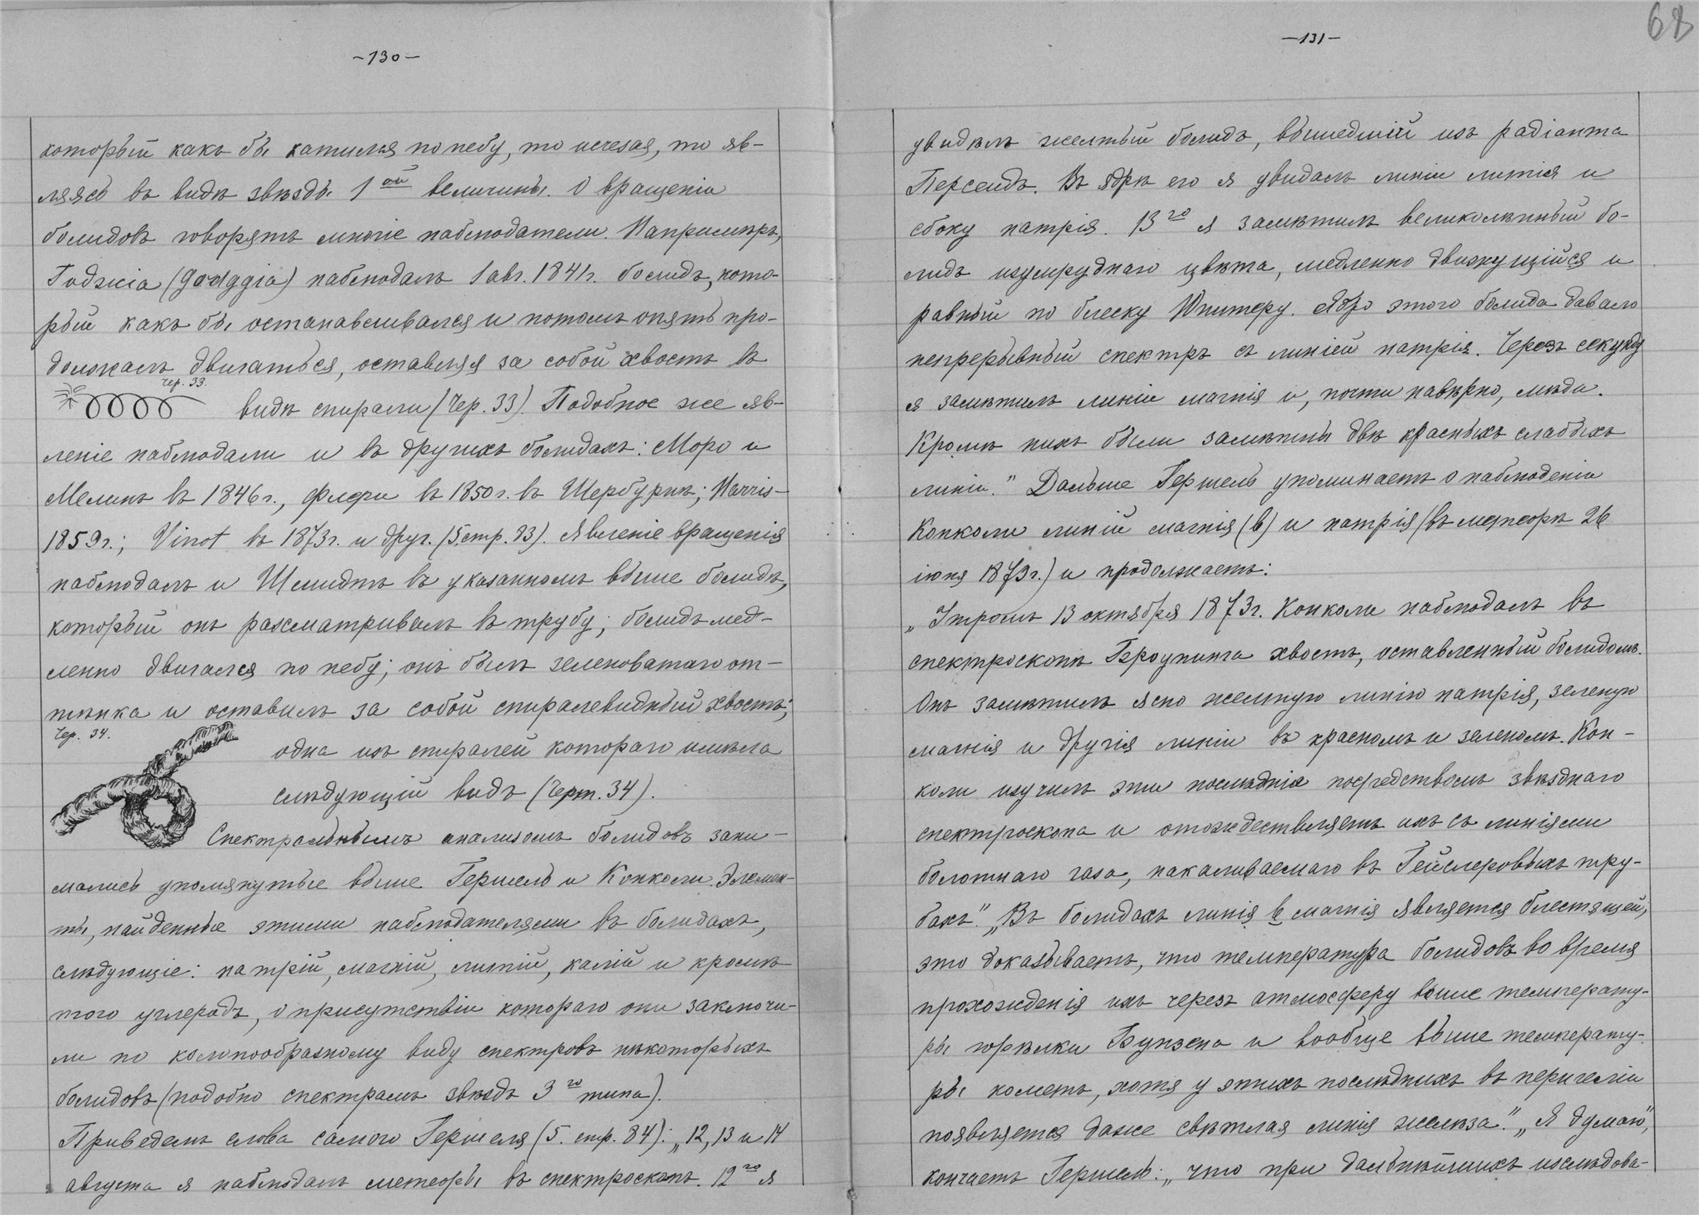 —130—
который какъ бы катился по небу, то исчезая, то яв-
ляясь въ видѣ звѣзды 1ой величины. О вращеніи
болидовъ говорятъ многіе наблюдатели. Напримѣръ,
Годжіа (Gooddgia) наблюдалъ 1 авг. 1841г. болидъ, кото-
рый какъ бы останавливался и потомъ опять про-
должалъ двигаться, оставляя за собой хвостъ въ
Чер. 33.
видѣ спирали (Чер. 33). Подобное же яв-
леніе наблюдали и въ другихъ болидахъ: Моро и
Мелинъ въ 1846г., Флери въ 1850г. въ Шербургѣ; Harris-
1859г.; Vinot въ 1873г. и друг. (5 стр. 33). Явленіе вращенія
наблюдалъ и Шмидтъ въ указанномъ выше болидѣ,
который онъ разсматривалъ въ трубу; болидъ мед-
ленно двигался по небу; онъ былъ зеленоватаго от-
тѣнка и оставилъ за собой спиралевидный хвостъ;
Чер. 34.
одна изъ спиралей котораго имѣла
слѣдующій видъ (Черт. 34).
Спектральнымъ анализомъ болидовъ зани-
мались упомянутые выше Гершель и Конколи. Элемен-
ты, найденные этими наблюдателями въ болидахъ,
слѣдующіе: натрій, магній, литій, калій и кромѣ
того углеродъ, о присутствіи котораго они заключи-
ли по колонообразному виду спектровъ нѣкоторыхъ
болидовъ (подобно спектрамъ звѣздъ 3го типа).
Приведемъ слова самого Гершеля (5. стр. 84): „12, 13 и 14
августа я наблюдалъ метеоры въ спектроскопъ. 12го я
—131—
68
увидѣлъ желтый болидъ, вышедшій изъ радіанта
Персеидъ. Въ ядрѣ его я увидалъ линіи литія и
сбоку натрія. 13го я замѣтилъ великолѣпный бо-
лидъ изумруднаго цвѣта, медленно движущійся и
равный по блеску Юпитеру. Ядро этого болида давало
непрерывный спектръ съ линіей натрія. Черезъ секунду
я замѣтилъ линіи магнія и, почти навѣрно, мѣди.
Кромѣ нихъ были замѣтны двѣ красныхъ слабыхъ
линіи.“ Дальше Гершель упоминаетъ о наблюденіи
Конколи линій магнія (b) и натрія (въ метеорѣ 26
іюня 1879г.) и продолжаетъ:
„Утромъ 13 октября 1873г. Конколи наблюдалъ въ
спектроскопъ Броунинга хвостъ, оставленный болидомъ.
Онъ замѣтилъ ясно желтую линію натрія, зеленую
магнія и другія линіи въ красномъ и зеленомъ. Кон-
коли изучилъ эти послѣднія посредствомъ звѣзднаго
спектроскопа и отождествляетъ ихъ съ линіями
болотнаго газа, накаливаемаго въ Гейслеровыхъ тру-
бахъ“. „Въ болидахъ линія b магнія является блестящей,
это доказываетъ, что температура болидовъ во время
прохожденія ихъ черезъ атмосферу выше температу-
ры горѣлки Бунзена и вообще выше температу-
ры кометъ, хотя у этихъ послѣднихъ въ перигеліи
появляется даже свѣтлая линія желѣза“. „Я думаю“,
кончаетъ Гершель: „что при дальнѣйшихъ изслѣдова-